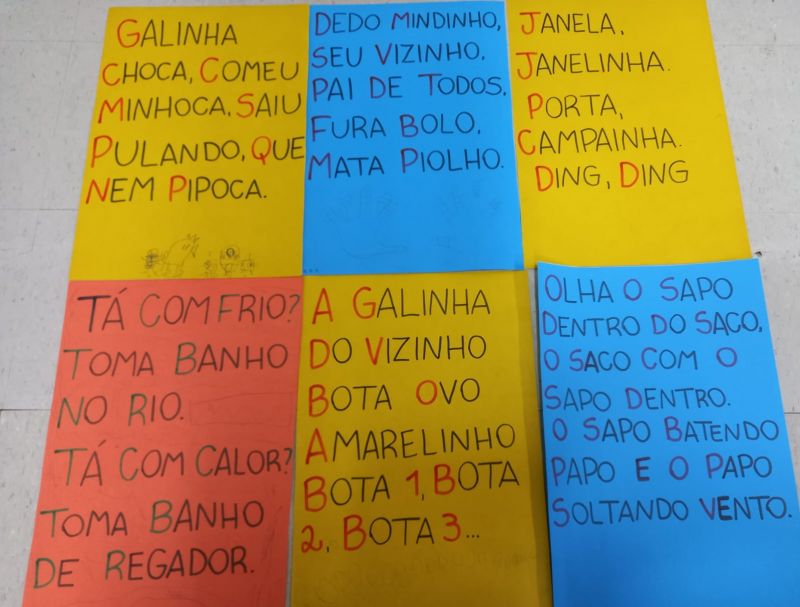 GALINHA
CHOCA, COMEU
MINHOCA, SAIU
PULANDO, QUE
NEM PIPOCA.
DEDO MINDINHO,
SEU VIZINHO,
PAI DE TODOS,
FURA BOLO,
MATA PIOLHO.
JANELA,
JANELINHA.
PORTA,
CAMPAINHA.
DING, DING
TÁ COM FRIO?
TOMA BANHO
NO RIO.
TÁ COM CALOR?
TOMA BANHO
DE REGADOR.
A GALINHA
DO VIZINHO
BOTA OVO
AMARELINHO
BOTA 1, BOTA
2, BOTA 3...
OLHA O SAPO
DENTRO DO SACO,
O SACO COM O
SAPO DENTRO.
O SAPO BATENDO
PAPO E O PAPO
SOLTANDO VENTO.